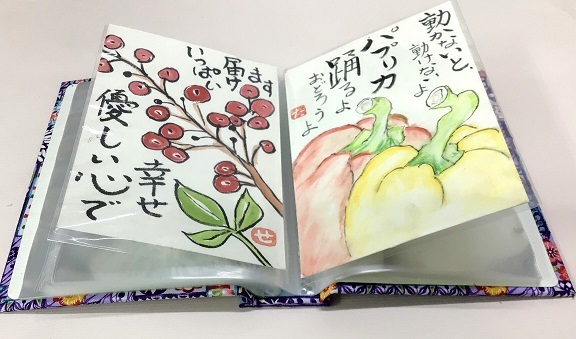 優しい心で
幸せ
いっぱい
届け
ます
せ
動かないと、
動けないよ
パプリカ
踊るよ
おどろうよ
た